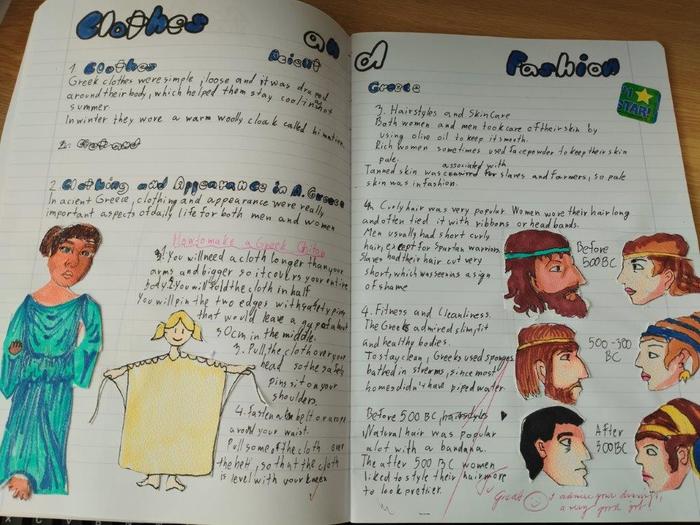 Clothes and
1. Clothes Acient
Greek clothes were simple, loose and it was draped
around their body, which helped them stay cool in hot
summer
In winter they wore a warm woolly cloak called himation.
2. Clothing and Appearance in A. Greece
In acient Greece, clothing and appearance were really
important aspects of daily life for both men and women
How to make a Greek Chiton
1. You will need a cloth longer than your
arms and bigger so it covers your entire
body 2. You will fold the cloth in half
You will pin the two edges with safety pins
that would leave a gap of about
30cm in the middle.
3. Pull the cloth over your
head so the safety
pins sit on your
shoulders.
4. Fasten a belt or a rope
around your waist.
Pull some of the cloth over
the belt, so that the cloth
is level with your knees
Fashion
Greece
STAR!
3. Hairstyles and Skin Care
Both women and men took care of their skin by
using olive oil to keep it smooth.
Rich women sometimes used face powder to keep their skin
pale.
Tanned skin was associated with for slaves and farmers, so pale
skin was in fashion.
4. Curly hair was very popular. Women wore their hair long
and often tied it with ribbons or headbands.
Men usually had short curly
hair, except for Spartan warriors.
Slaves had their hair cut very
short, which was seen as a sign
of shame
Before
500 BC
4. Fitness and Cleanliness.
The Greeks admired slim, fit
and healthy bodies.
To stay clean, Greeks used sponges
bathed in streams, since most
homes didn't have piped water.
500-300
BC
Before 500 BC, hairstyles
Natural hair was popular
alot with a bandana.
The after 500 BC women
liked to style their hair more
to look prettier.
After
300BC
Great I admire your drawings,
a very good job!